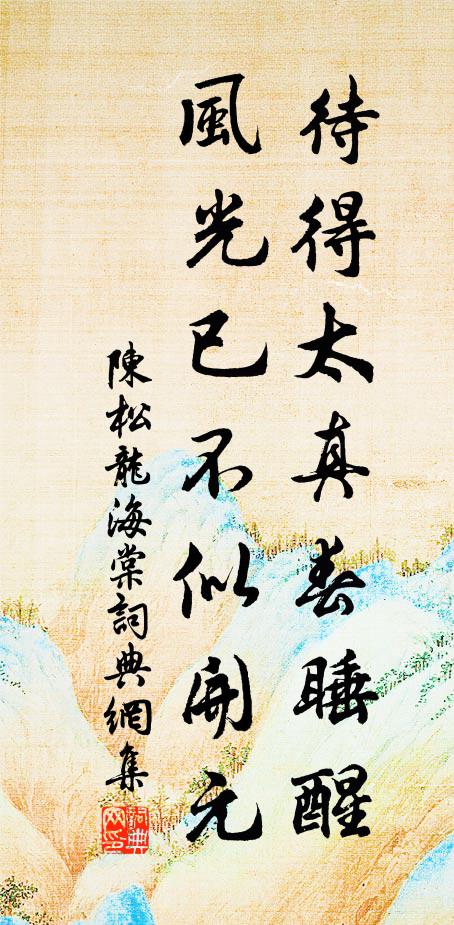 待得太真春睡醒
風光已不似開元
陳松龍海棠詞典網集
詞典網印